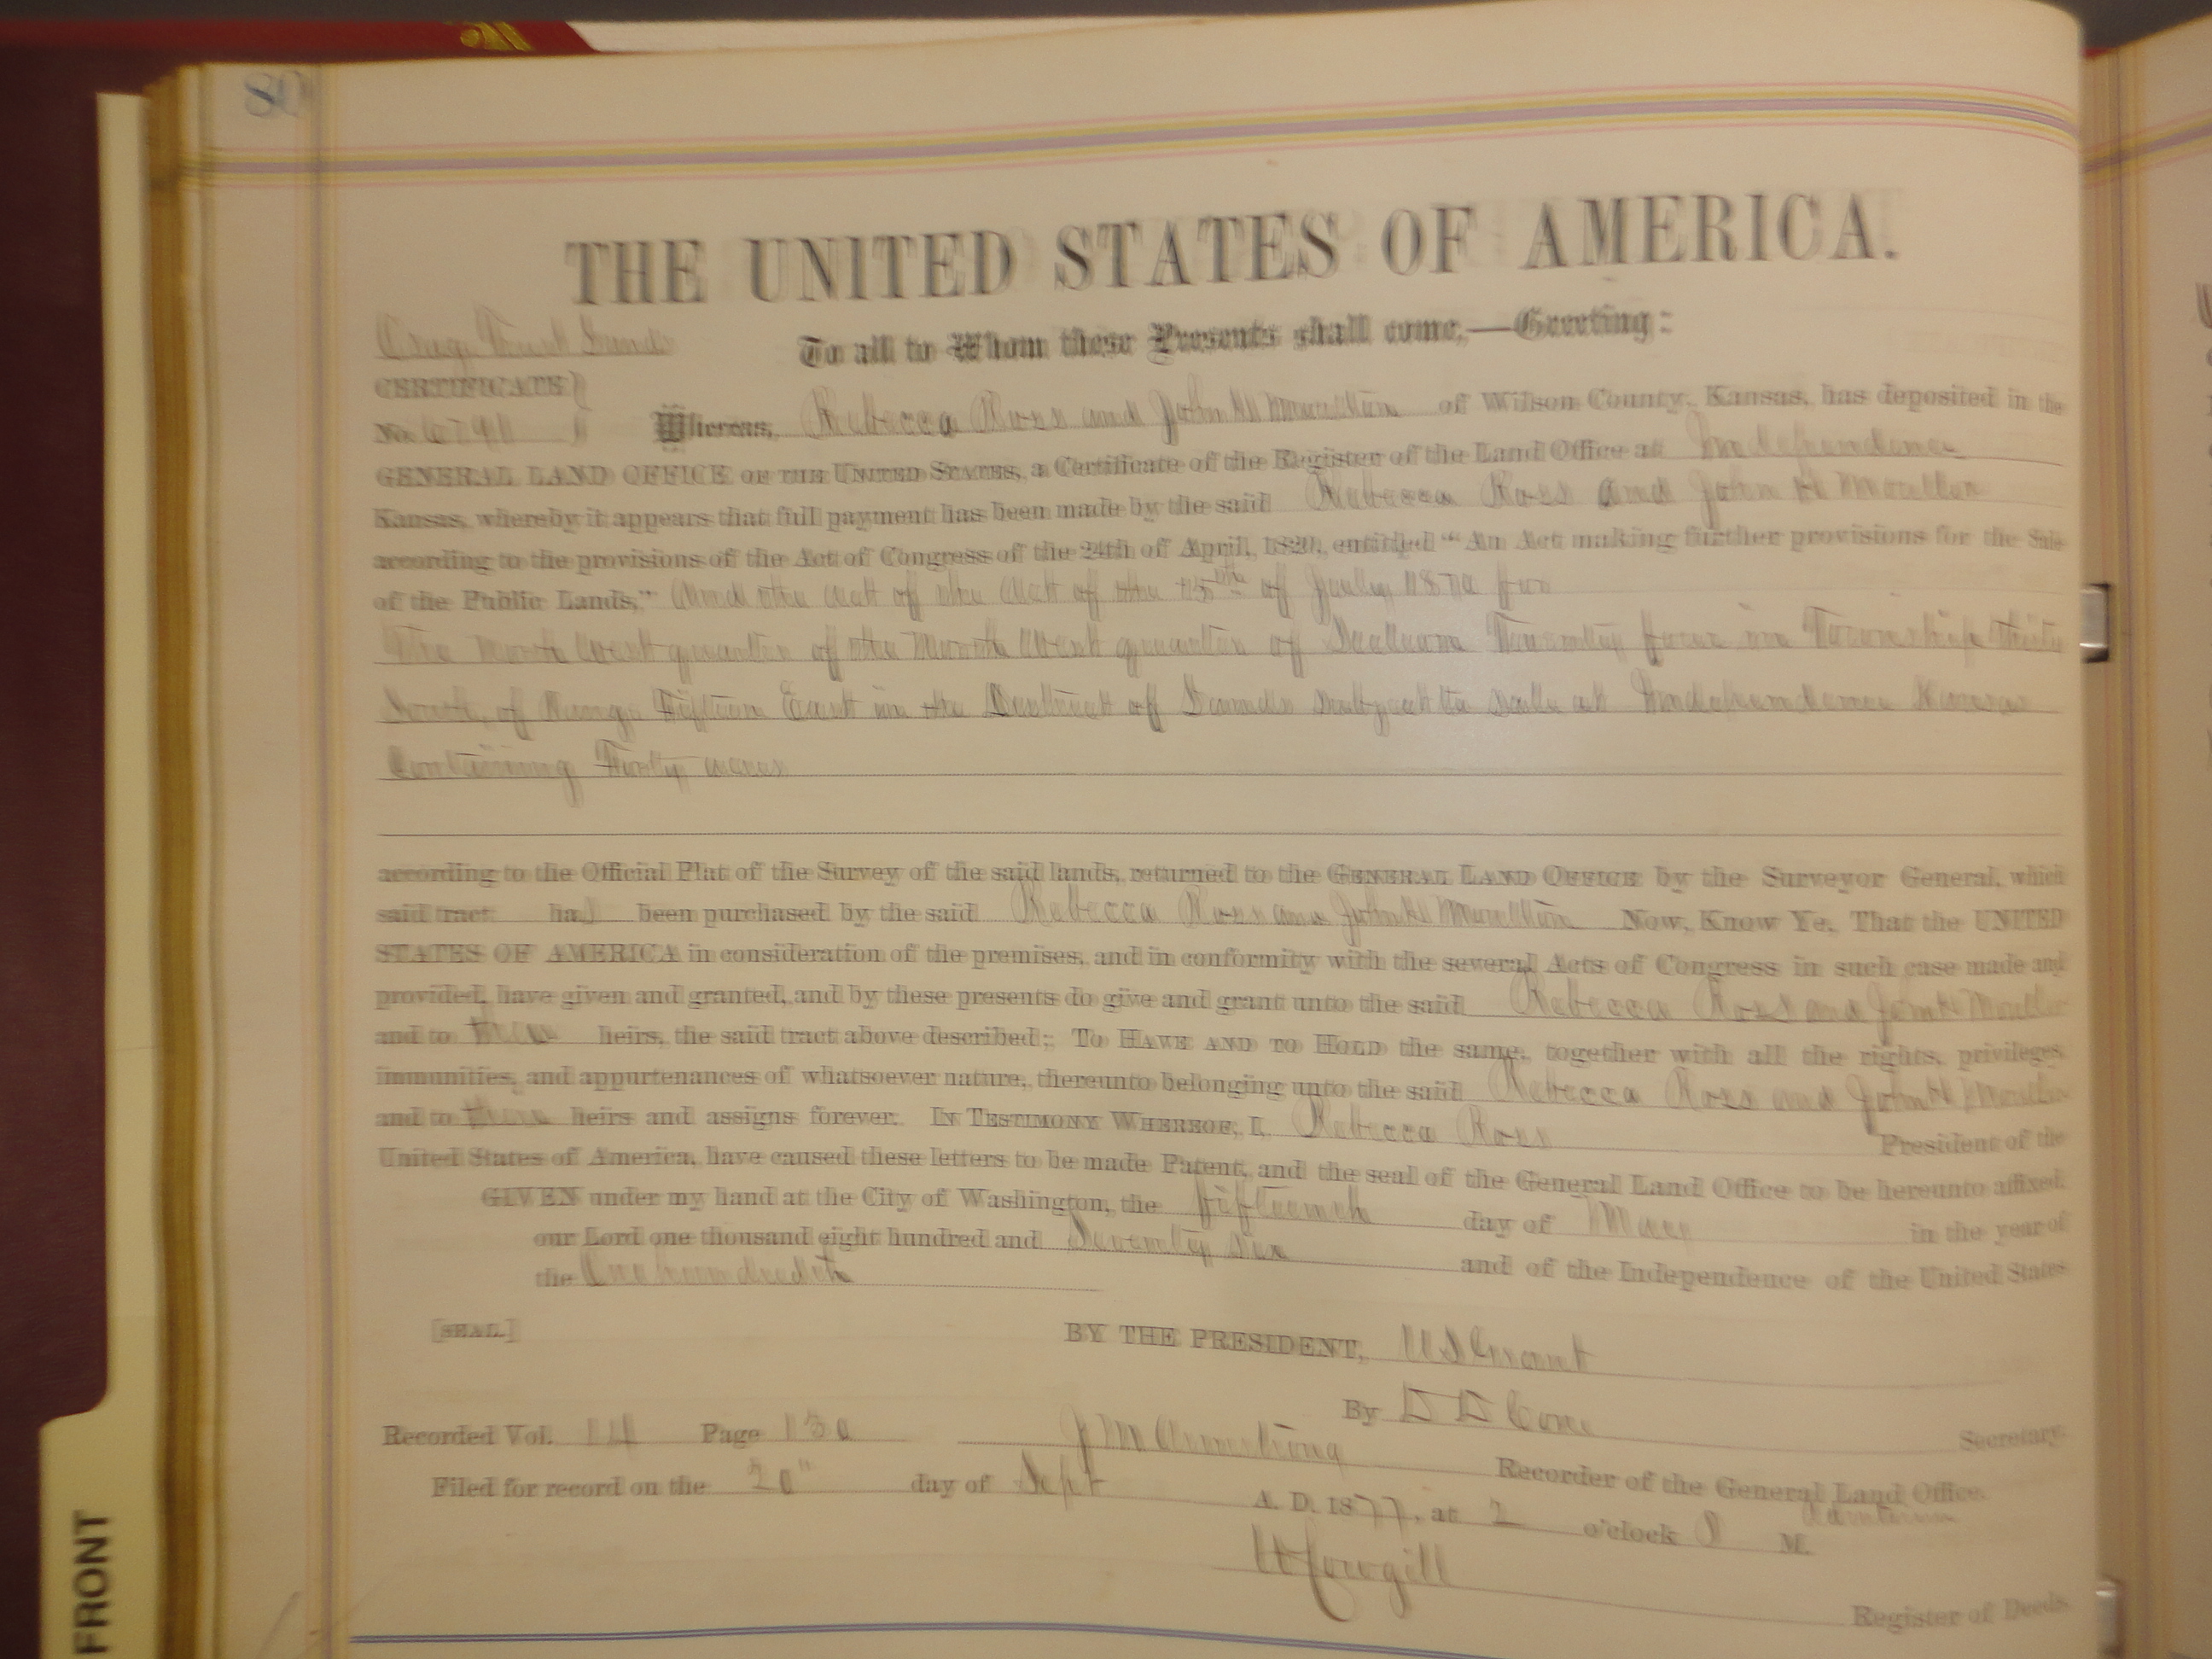 80
THE UNITED STATES OF AMERICA.
Osage Trust Lands
To all to Whom these Presents shall come,—Greeting:
CERTIFICATE}
No. Whereas, Rebecca Ross and John H Moulton of Wilson County, Kansas, has deposited in the
GENERAL LAND OFFICE OF THE UNITED STATES, a Certificate of the Register of the Land Office at Independence
Kansas, whereby it appears that full payment has been made by the said Rebecca Ross and John H Moulton
according to the provisions of the Act of Congress of the 24th of April, 1820, entitled “An Act making further provisions for the Sale
of the Public Lands,” and the act of the act of the 15th of July 1870 for
The North West quarter of the North West quarter of Section Twenty four in Township thirty
South, of Range Fifteen East in the District of Lands subject to sale at Independence Kansas
Containing Forty acres
according to the Official Plat of the Survey of the said lands, returned to the GENERAL LAND OFFICE by the Surveyor General, which
said tract has been purchased by the said Rebecca Ross and John H Moulton Now, Know Ye, That the UNITED
STATES OF AMERICA in consideration of the premises, and in conformity with the several Acts of Congress in such case made and
provided, have given and granted, and by these presents do give and grant unto the said Rebecca Ross and John H Moulton
and to their heirs, the said tract above described; TO HAVE AND TO HOLD the same, together with all the rights, privileges,
immunities, and appurtenances of whatsoever nature, thereunto belonging unto the said Rebecca Ross and John H Moulton
and to their heirs and assigns forever. IN TESTIMONY WHEREOF, I, Rebecca Ross President of the
United States of America, have caused these letters to be made Patent, and the seal of the General Land Office to be hereunto affixed.
GIVEN under my hand at the City of Washington, the fifteenth day of May in the year of
our Lord one thousand eight hundred and Seventy Six and of the Independence of the United States
the One hundredth
[SEAL.] BY THE PRESIDENT, U S Grant
By D D Cone Secretary.
Recorded Vol. 14 Page 130 J M Armstrong Recorder of the General Land Office.
Filed for record on the 20" day of Sept A. D. 1877, at 2 o'clock P M.
W Cowgill
Register of Deeds.
FRONT